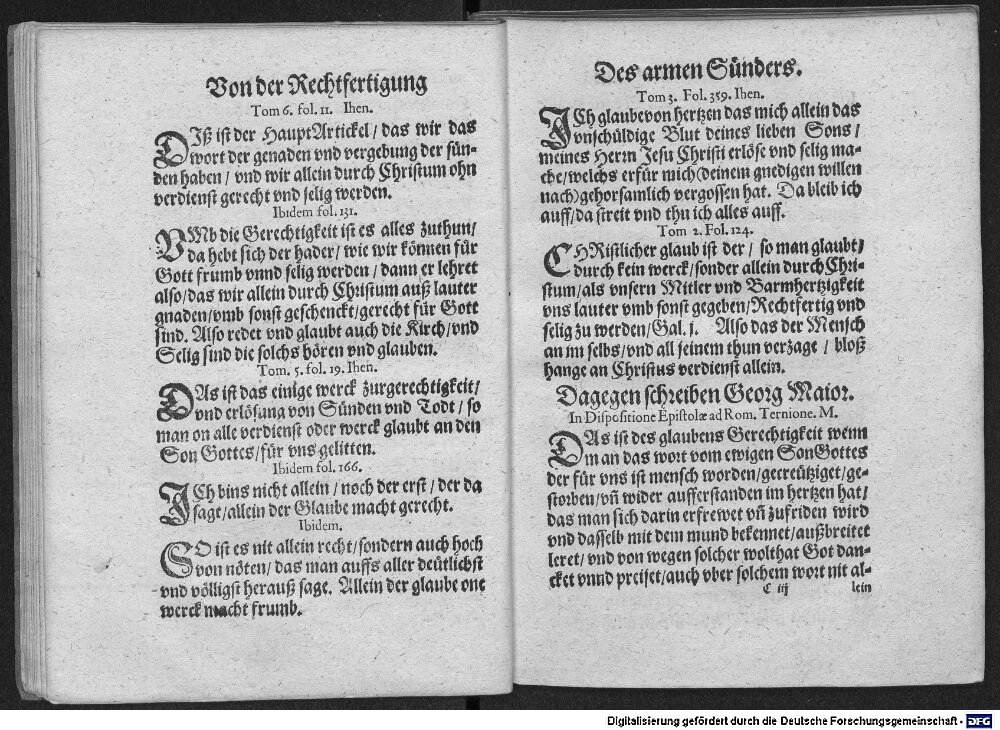 Von der Rechtfertigung
Tom 6. fol. 11. Ihen.
DIß ist der HauptArtickel/ das wir das
wort der genaden vnd vergebung der sün-
den haben/ vnd wir allein durch Christum ohn
verdienst gerecht vnd selig werden.
Ibidem fol. 131.
VMb die Gerechtigkeit ist es alles zuthun/
da hebt sich der hader/ wie wir können für
Gott frumb vnnd selig werden/ dann er lehret
also/das wir allein durch Christum auß lauter
gnaden/vmb sonst geschenckt/gerecht für Gott
sind. Also redet vnd glaubt auch die Kirch/vnd
Selig sind die solchs hören vnd glauben.
Tom. 5. fol. 19. Ihen.
DAs ist das einige werck zurgerechtigkeit/
vnd erlösung von Sünden vnd Todt/ so
man on alle verdienst oder werck glaubt an den
Son Gottes/für vns gelitten.
Ibidem fol. 166.
ICh bins nicht allein/ noch der erst/ der da
sagt/allein der Glaube macht gerecht.
Ibidem.
SO ist es nit allein recht/sondern auch hoch
von nöten/ das man auffs aller deütlichst
vnd völligst herauß sage. Allein der glaube one
werck macht frumb.
Des armen Sünders.
Tom 3. Fol. 359. Ihen.
ICh glaube von hertzen das mich allein das
vnschüldige Blut deines lieben Sons/
meines Herrn Jesu Christi erlöse vnd selig ma-
che/welchs er für mich (deinem gnedigen willen
nach) gehorsamlich vergossen hat. Da bleib ich
auff/da streit vnd thu ich alles auff.
Tom 2. Fol. 124.
CHRistlicher glaub ist der/ so man glaubt/
durch kein werck/sonder allein durch Chri-
stum/als vnsern Mitler vnd Barmhertzigkeit
vns lauter vmb sonst gegeben/Rechtfertig vnd
selig zu werden/Gal. j. Also das der Mensch
an im selbs/vnd all seinem thun verzage/ bloß
hange an Christus verdienst allein.
Dagegen schreiben Georg Maior.
In Dispositione Epistolæ ad Rom. Ternione. M.
DAs ist des glaubens Gerechtigkeit wenn
man das wort vom ewigen SonGottes
der für vns ist mensch worden/gecreütziget/ge-
storben/vñ wider aufferstanden im hertzen hat/
das man sich darin erfrewet vñ zufriden wird
vnd dasselb mit dem mund bekennet/außbreitet
leret/vnd von wegen solcher wolthat Got dan-
cket vnnd preiset/auch vber solchem wort nit al-
C iij lein
Digitalisierung gefördert durch die Deutsche Forschungsgemeinschaft - DFG